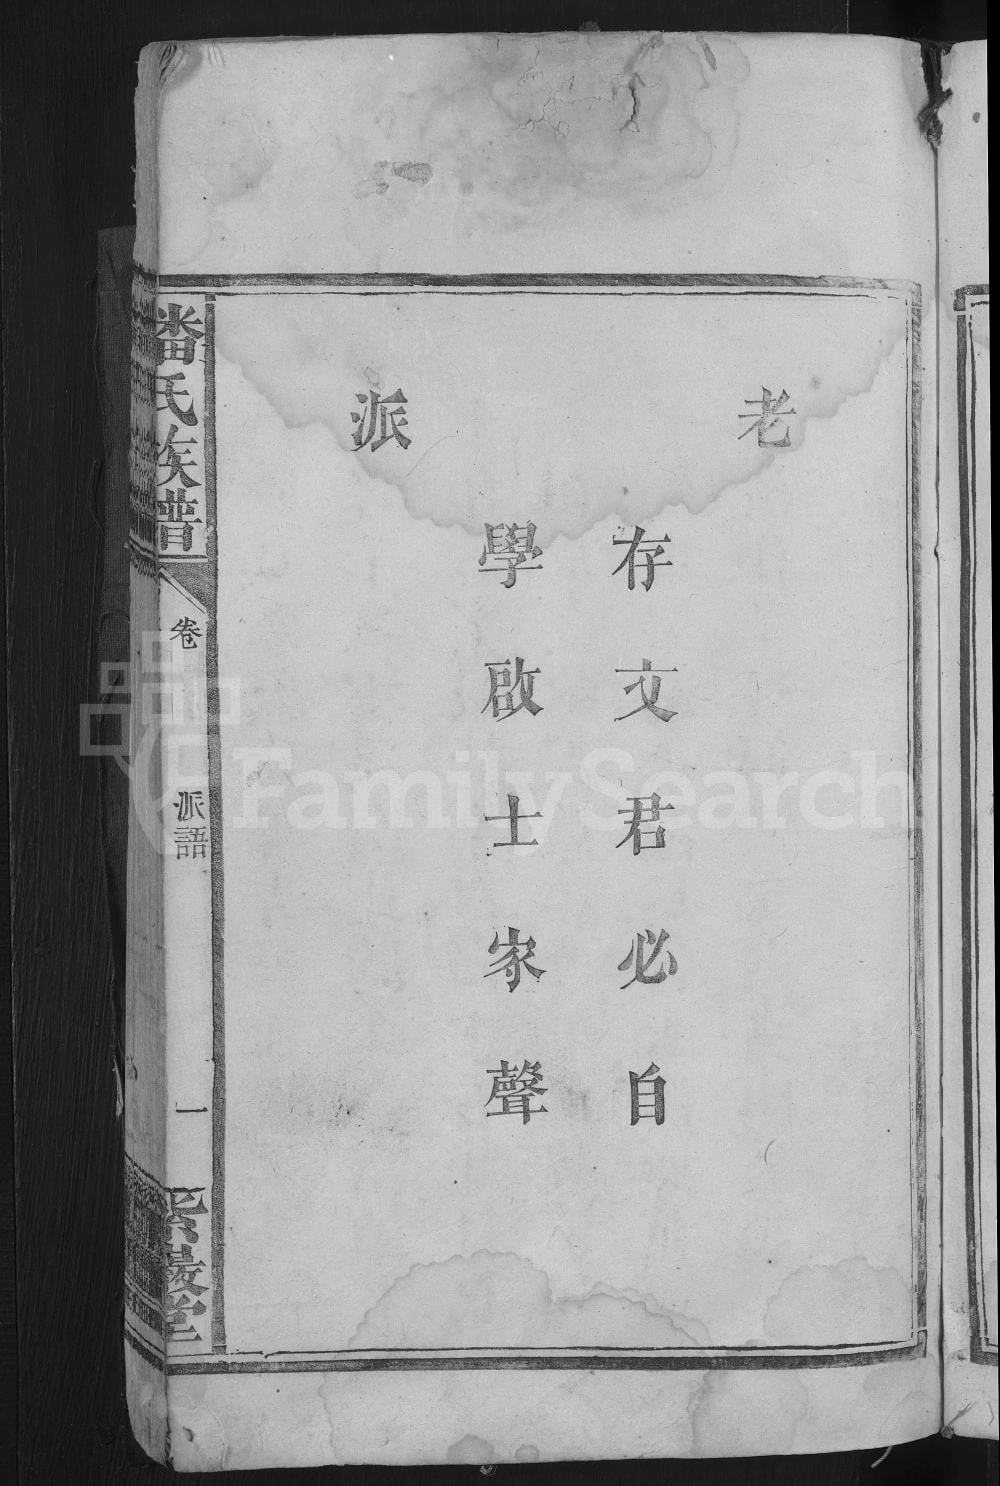 老
存文君必自
學啟士家聲
派
潘氏族譜
卷
派語
一
堂
FamilySearch